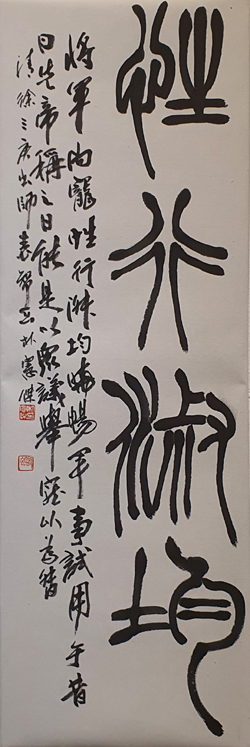 性行淑均
將軍向寵性行淑均曉暢軍事試用于昔
日先帝稱之曰能是以眾議舉寵以為督
清徐三庚出師表 林憲傑